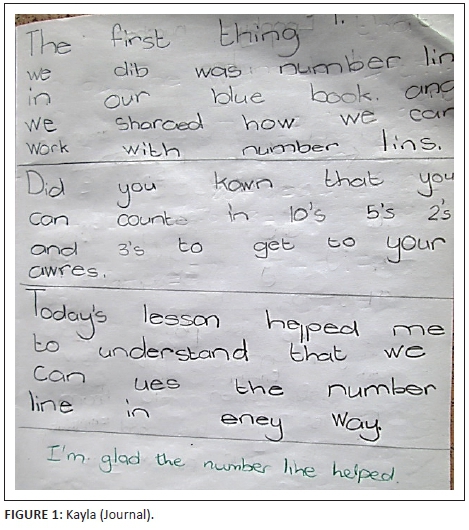 The first thing
we dib was number lin
in our blue book. and
we sharced how we can
work with number lins.
Did you kown that you
can counte in 10's 5's 2's
and 3's to get to your
awres.
Today's lesson helped me
to understand that we
can ues the number
line in eney way.
I'm glad the number line helped.
FIGURE 1: Kayla (Journal).